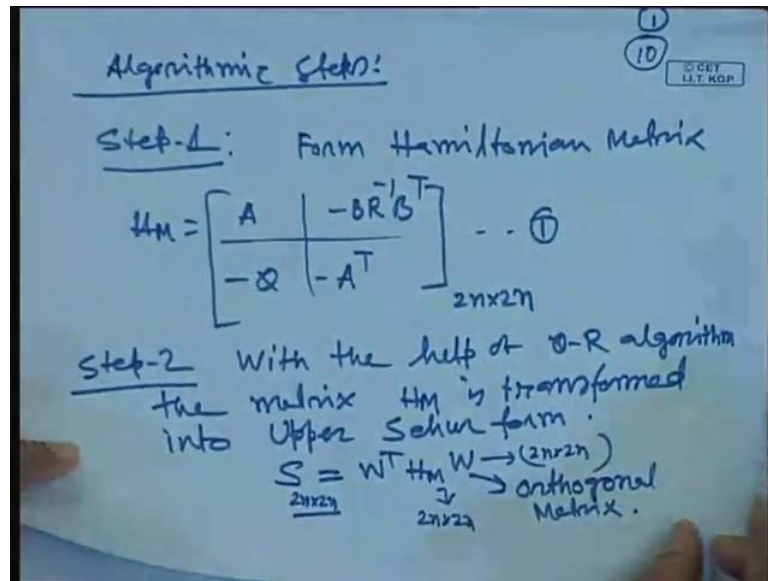 ①
⑩
© CET
I.I.T. KGP
Algorithmic Steps:
Step-1: Form Hamiltonian Matrix
H_M = [ A | -BR⁻¹Bᵀ
-Q | -Aᵀ ] 2n×2n -- ①
Step-2 With the help of Q-R algorithm
the matrix H_M is transformed
into Upper Schur form.
S = Wᵀ H_M W → (2n×2n)
2n×2n 2n×2n → orthogonal
Matrix.